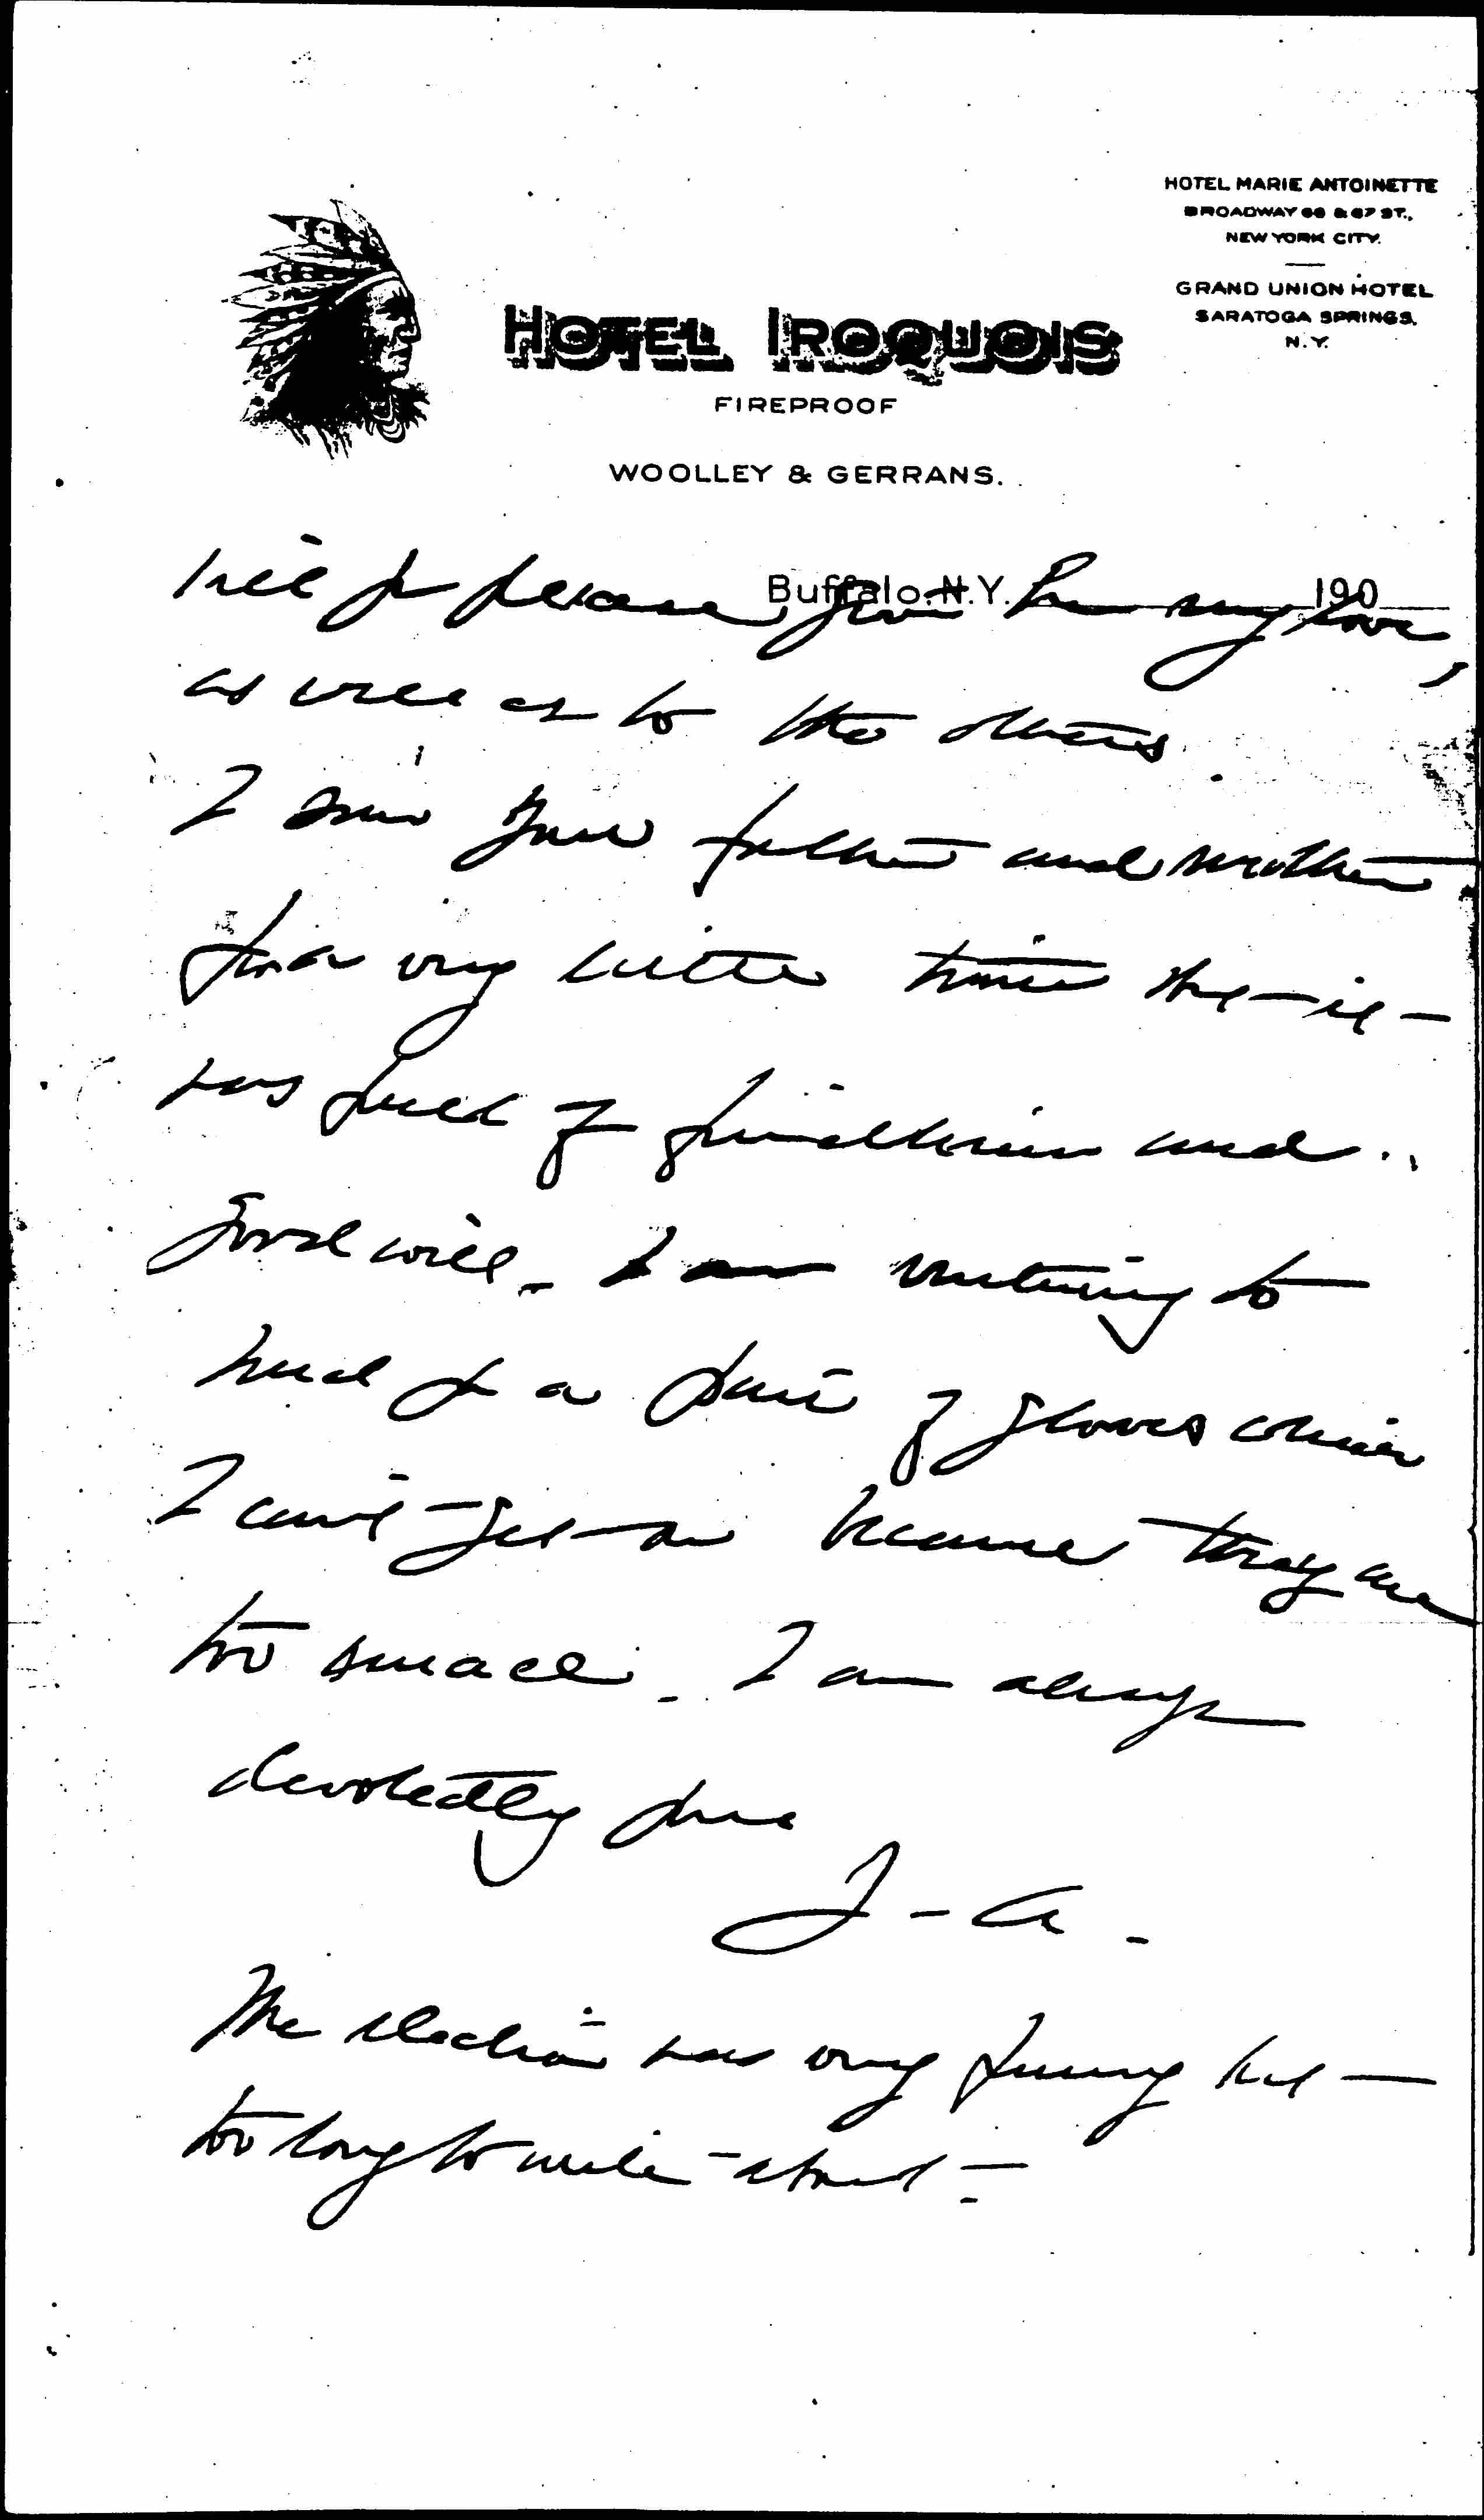 HOTEL MARIE ANTOINETTE
BROADWAY 66 & 67 ST.,
NEW YORK CITY.
GRAND UNION HOTEL
SARATOGA SPRINGS,
N.Y.
HOTEL IROQUOIS
FIREPROOF
WOOLLEY & GERRANS.
Buffalo, N.Y. 190
please give her my love,
as well as to the others.
I saw your father and mother
for a very little time but it
was full of friendliness and
good will. I am venturing to
send for a pair of gloves which
I can't get on because they are
too small. I am always
devotedly yours
J-A-
The election was very funny but
too long to write about-